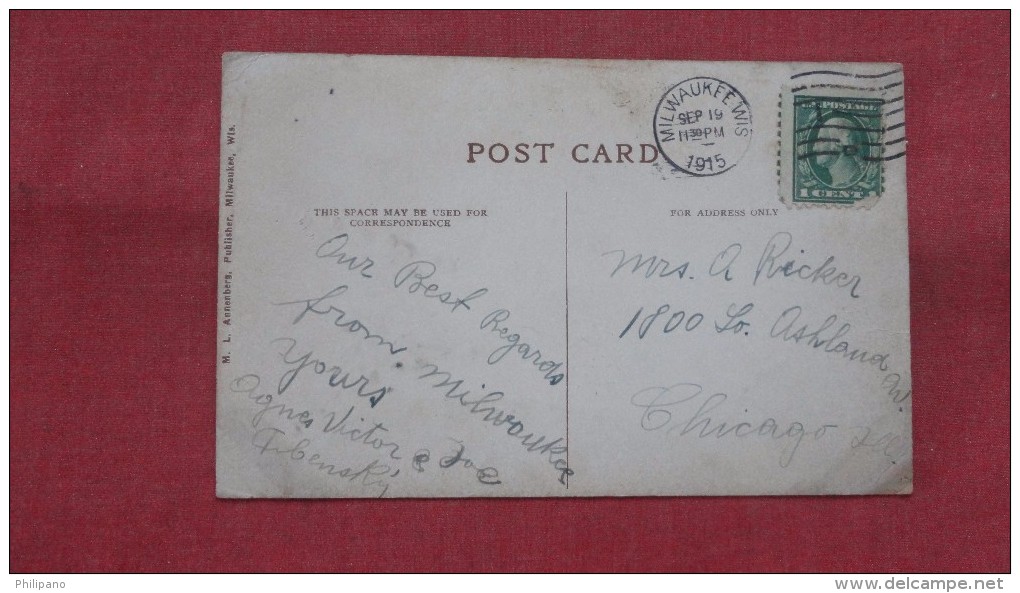 M. L. Annenberg, Publisher, Milwaukee, Wis.
POST CARD
MILWAUKEE WIS
SEP 19
11 30 PM
1915
U.S. POSTAGE
1 CENT 1
THIS SPACE MAY BE USED FOR
CORRESPONDENCE
FOR ADDRESS ONLY
Our Best Regards
from. Milwaukee
Yours
Agnes Victor & Joe
Fibensky
Mrs. A Ricker
1800 So. Ashland
Chicago Ill.
Philipano
www.delcampe.net